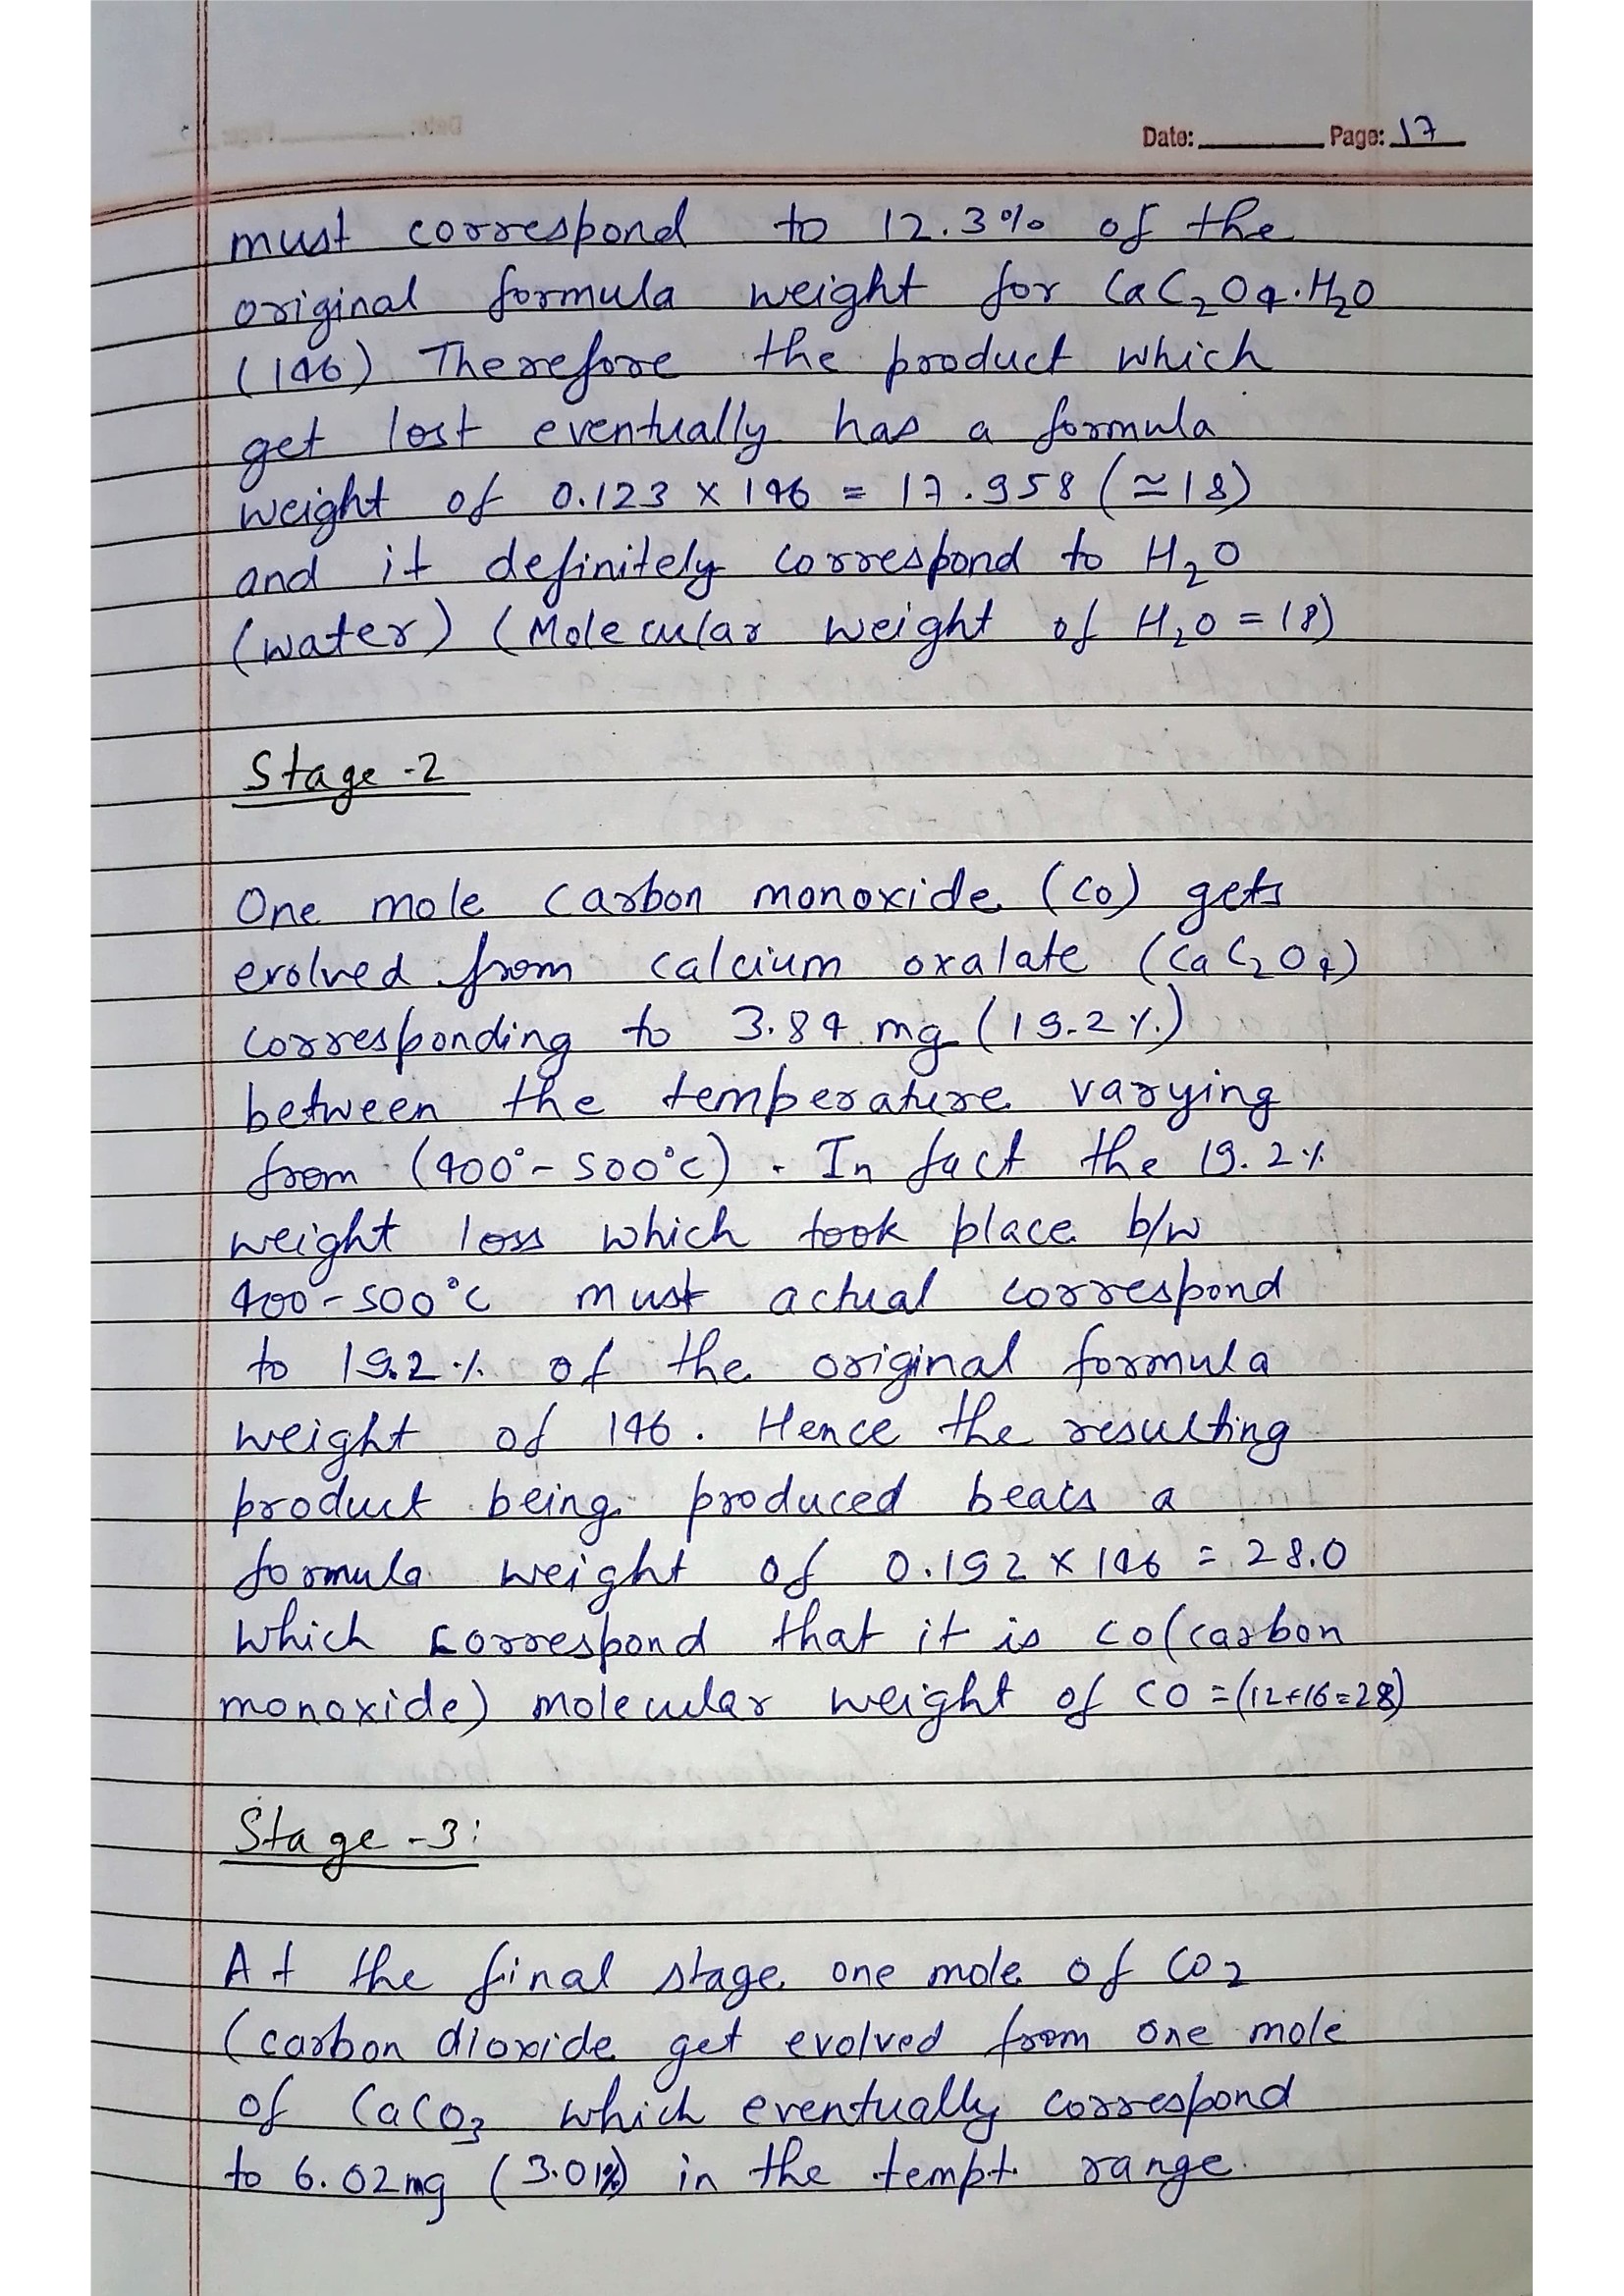 Date: Page: 17
must correspond to 12.3% of the
original formula weight for CaC2O4.H2O
(146) Therefore the product which
get lost eventually has a formula
weight of 0.123 x 146 = 17.958 (≃18)
and it definitely correspond to H2O
(water) (Molecular weight of H2O = 18)
Stage -2
One mole carbon monoxide (CO) gets
evolved from calcium oxalate (CaC2O4)
corresponding to 3.84 mg (19.2%)
between the temperature varying
from (400°- 500°C) . In fact the 19.2%
weight loss which took place b/w
400°- 500°C must actual correspond
to 19.2% of the original formula
weight of 146. Hence the resulting
product being produced bears a
formula weight of 0.192 x 146 = 28.0
which correspond that it is CO(carbon
monoxide) molecular weight of CO =(12+16=28)
Stage -3:
At the final stage one mole of CO2
(carbon dioxide get evolved from one mole
of CaCO3 which eventually correspond
to 6.02mg (3.01%) in the tempt. range.